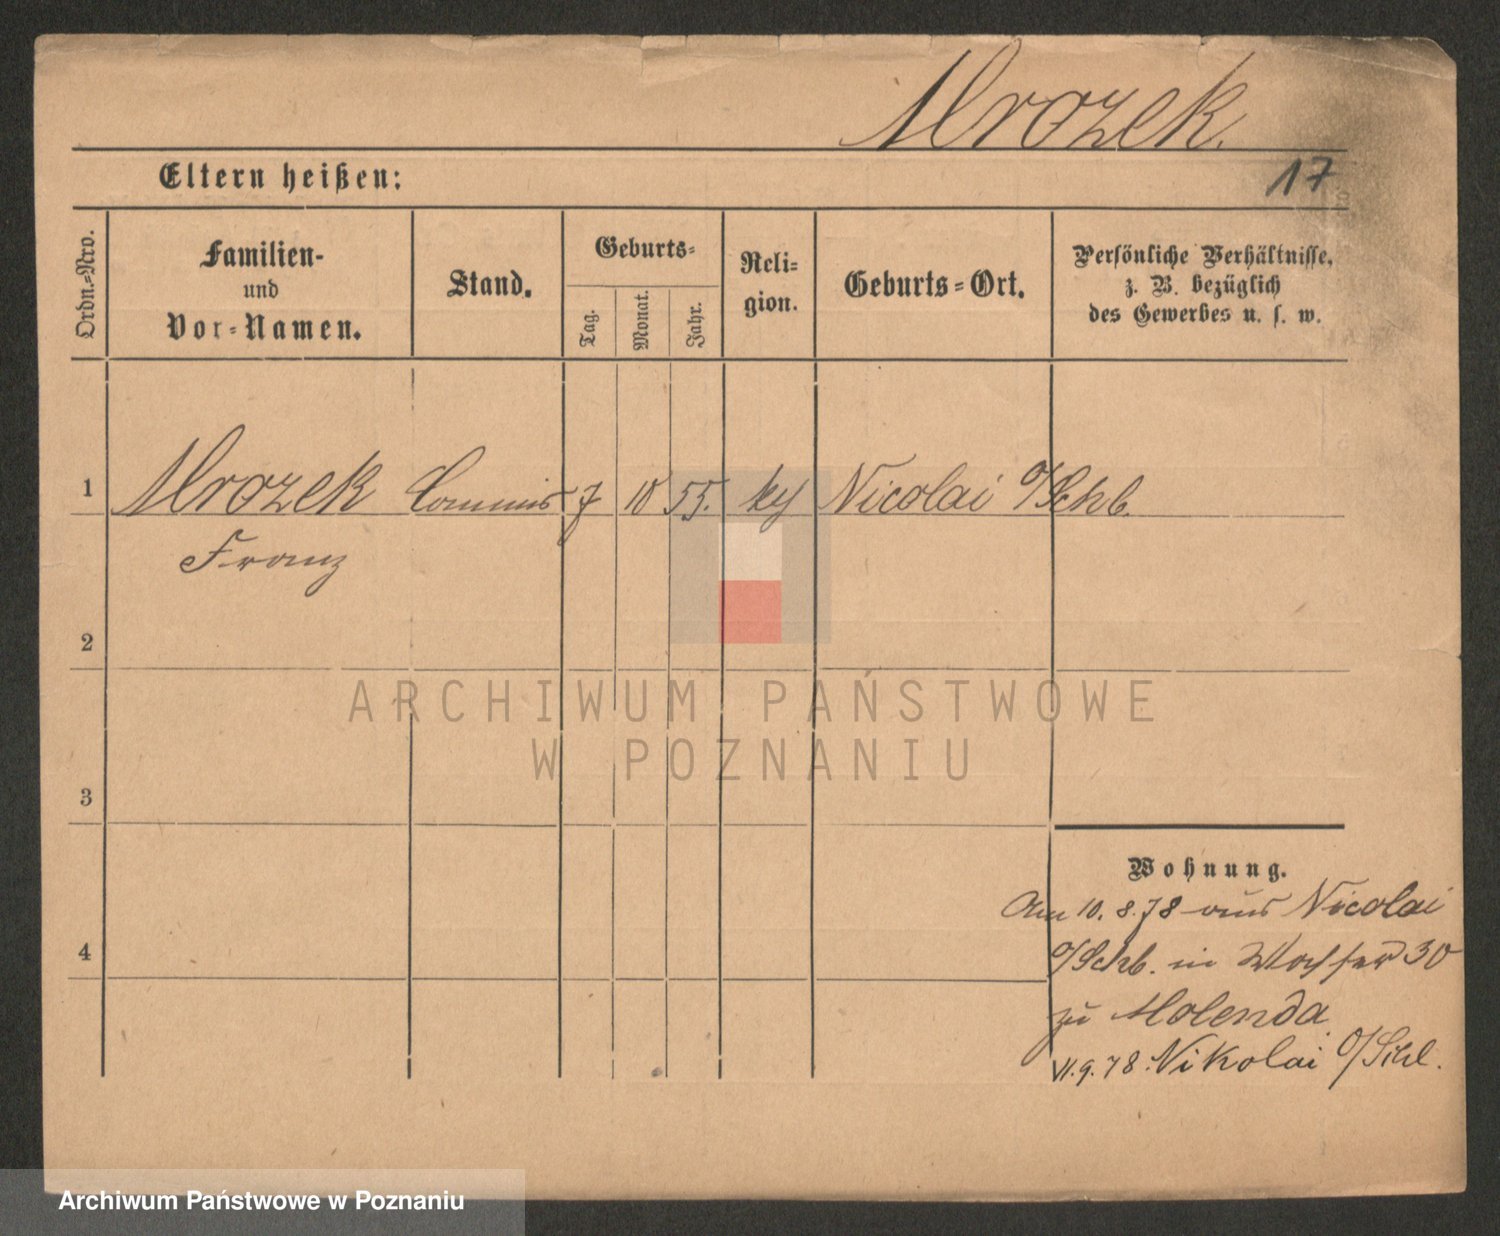 Mrozek.
Eltern heißen:
17
Ordn.=Nro.
Familien-
und
Vor=Namen.
Stand.
Geburts=
Tag.
Monat.
Jahr.
Reli=
gion.
Geburts=Ort.
Persönliche Verhältnisse,
z. B. bezüglich
des Gewerbes u. s. w.
1 Mrozek Commis 7 10 55. Nicolai O/Schb.
Franz
2
ARCHIWUM PAŃSTWOWE
W POZNANIU
3
Wohnung.
Am 10. 8. 78 aus Nicolai
O/Schb. in Wasser 30
4
zu Molenda
VI. 9. 78. Nikolai O/Schl.
Archiwum Państwowe w Poznaniu